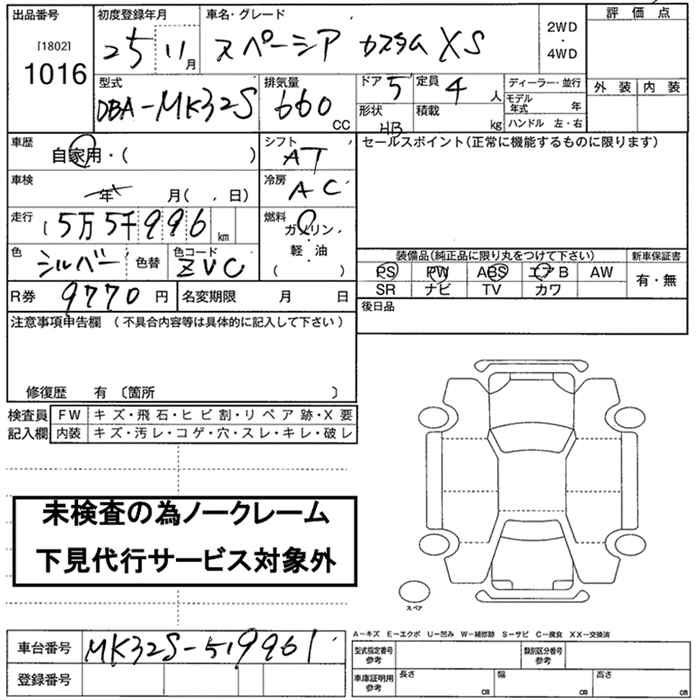 出品番号 初度登録年月 車名・グレード 評価点
[1802]
1016 25 11月 スペーシア カスタム XS 2WD・4WD
型式 排気量 ドア 5 定員 4人 ディーラー・並行 外装 内装
DBA-MK32S 660 CC 形状 HB 積載 kg モデル年式 年
ハンドル 左・右
車歴 シフト セールスポイント(正常に機能するものに限ります)
自家用・( ) AT
車検 冷房
年 月( 、日) AC
走行 燃料
5万5千996km ガソリン・軽・油
( )
色 シルバー 色替 色コード ZVC
装備品(純正品に限り丸をつけて下さい) 新車保証書
PS PW ABS エアB AW 有・無
SR ナビ TV カワ
R券 9770円 名変期限 月 日 後日品
注意事項申告欄 (不具合内容等は具体的に記入して下さい)
修復歴 有 〔箇所 〕
検査員 FW キズ・飛石・ヒビ割・リペア跡・X要
記入欄 内装 キズ・汚レ・コゲ・穴・スレ・キレ・破レ
未検査の為ノークレーム
下見代行サービス対象外
スペア
A-キズ E-エクボ U-凹み W-補修跡 S-サビ C-腐食 XX-交換済
車台番号 MK32S-519961
登録番号
型式指定番号 参考 類別区分番号 参考
車庫証明用 参考 長さ cm 幅 cm 高さ cm